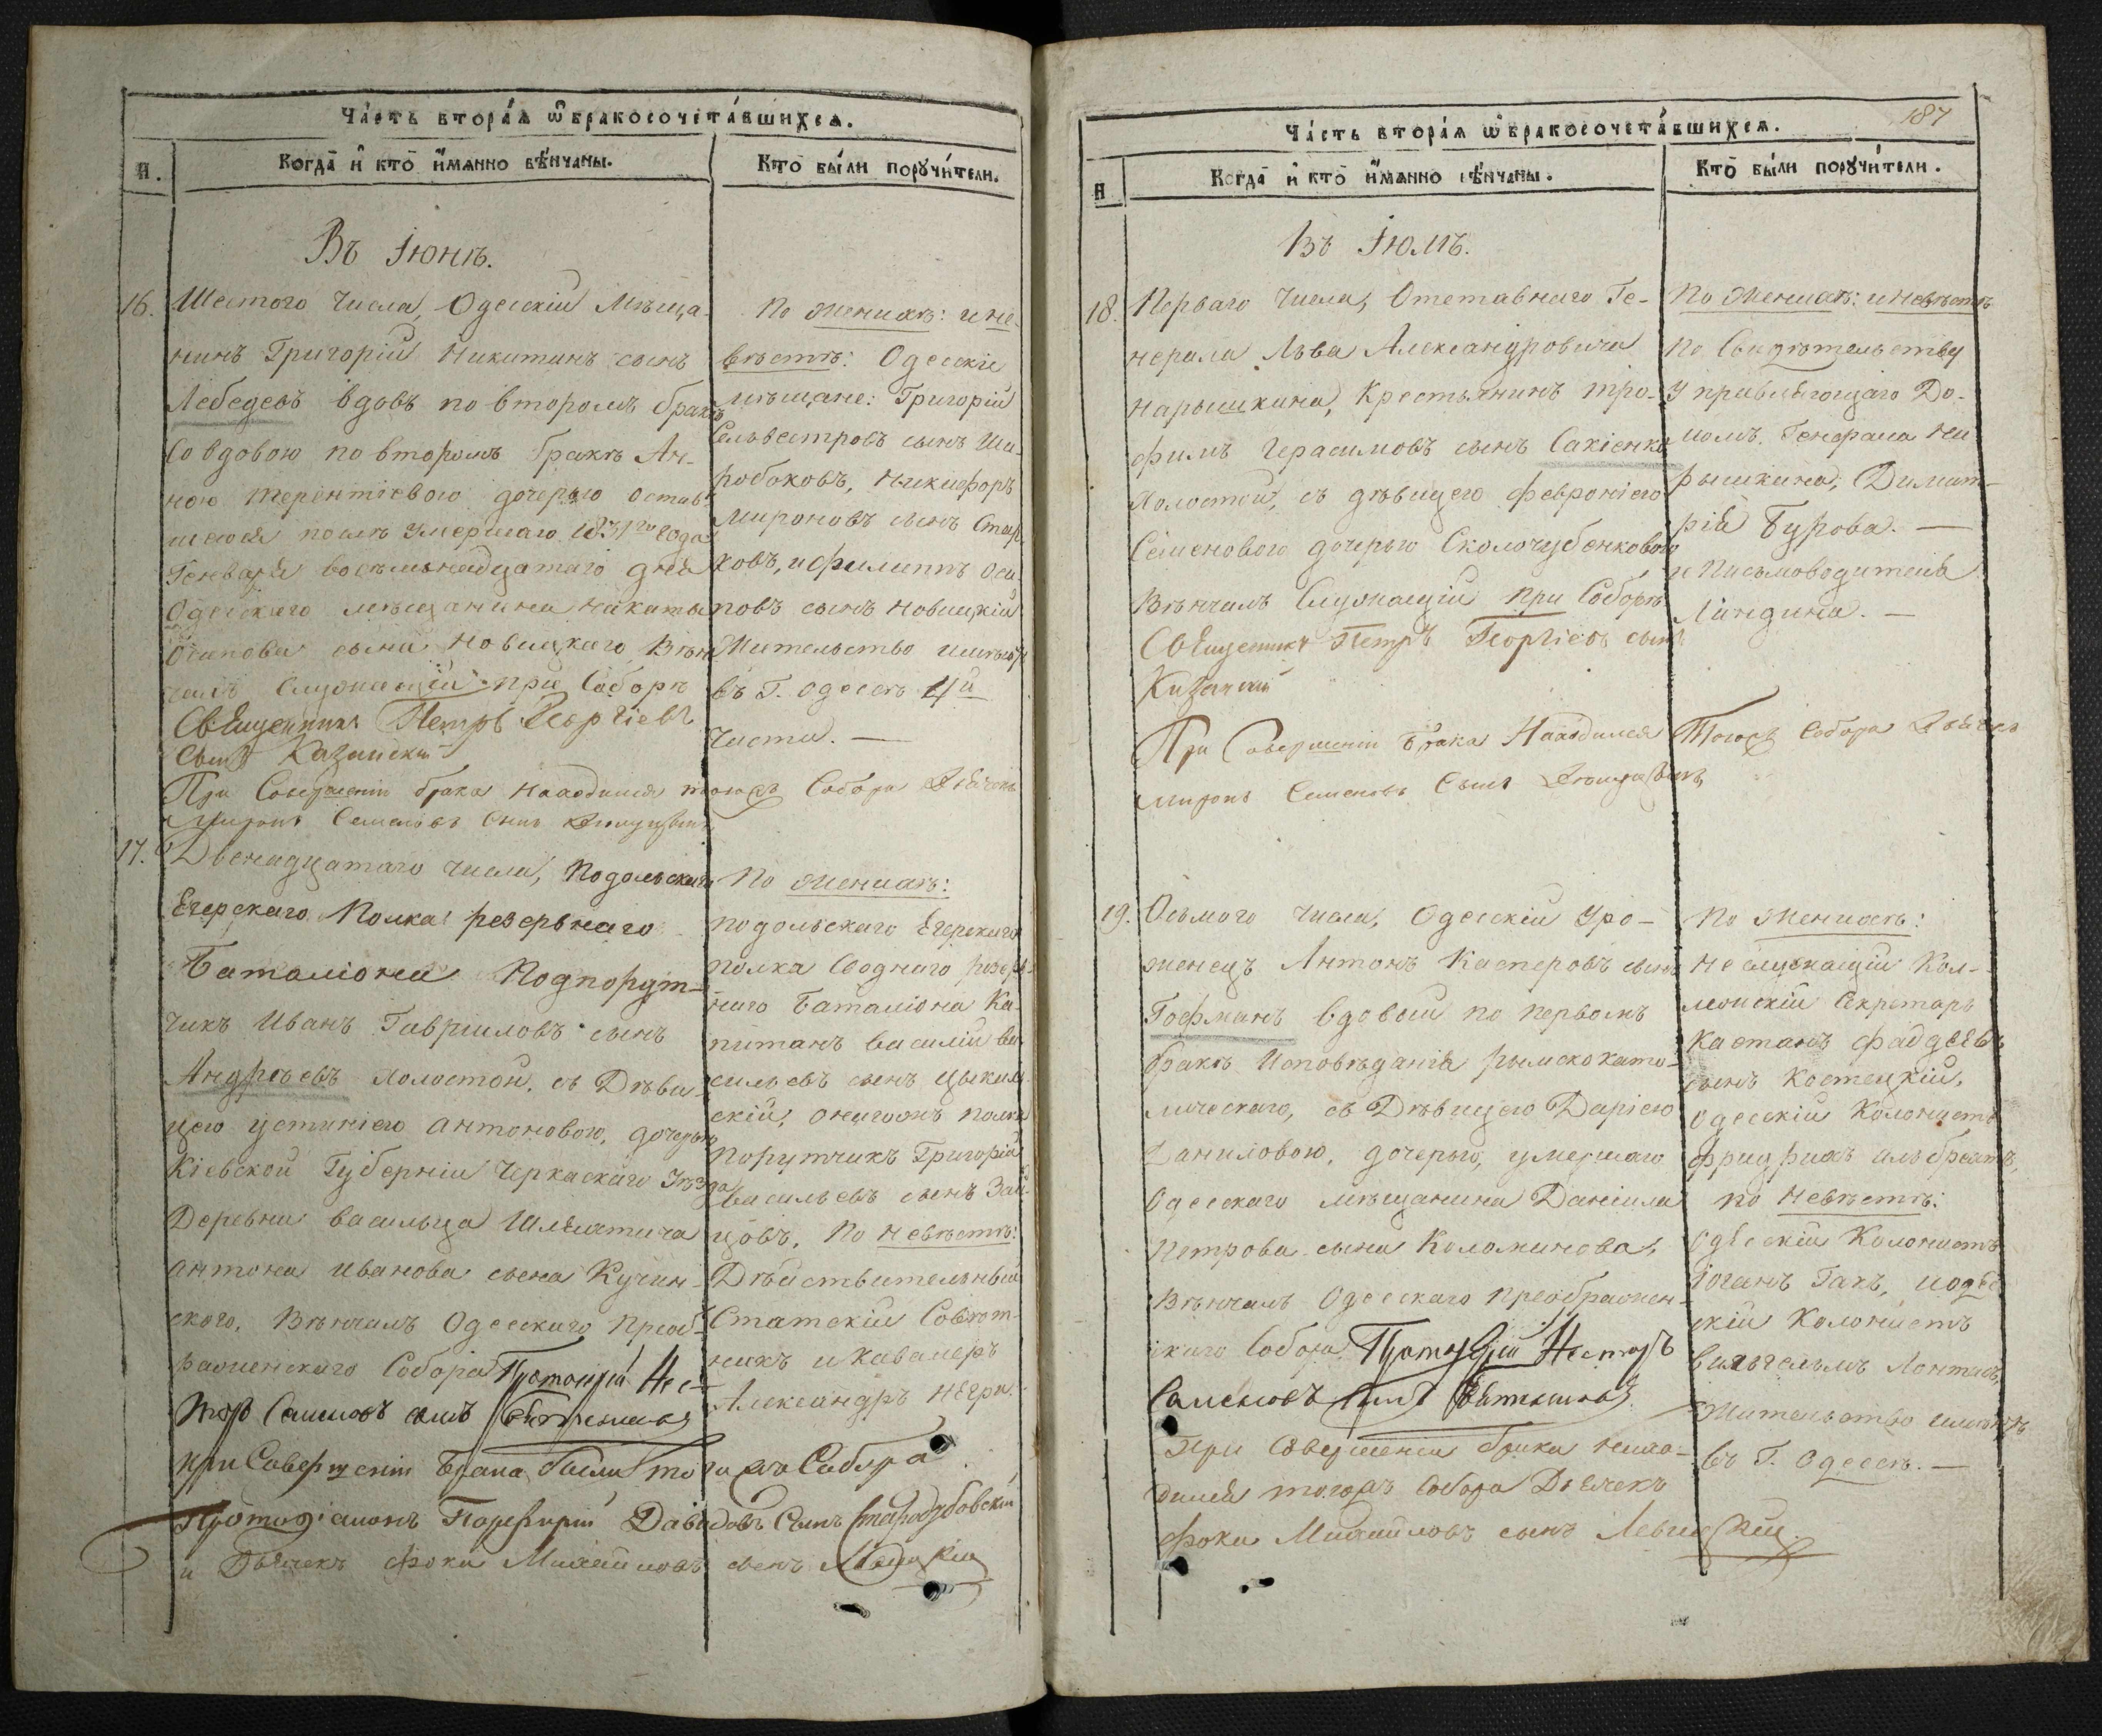 Ча́сть втора́ѧ ѡ҆ бракосочета́вшихсѧ.
Н.
Когда̀ и҆ кто̀ и҆́мѧнно вѣ́нчаны.
Кто̀ бы́ли порꙋчи́тели.
Въ Іюнѣ.
16.
Шестого числа, Одесскій Мѣща-
нинъ Григорій Никитинъ сынъ
Лебедевъ вдовъ по второмъ бракѣ
Со вдовою по второмъ бракѣ Ан-
ною Терентіевою дочерью остав-
шеюся послѣ умершаго 1831го года
Генваря восемьнадцатаго дня
Одесскаго мѣщанина Никиты
Осипова сына Новицкаго Вѣн-
чалъ Служащій при Соборѣ
Священникъ Петръ Георгіевъ
Сынъ Казанскій
При Совершеніи брака находился тогожъ Собора Дьячекъ
Миронъ Семеновъ Сынъ
По женихѣ: и не-
вѣстѣ: Одесскіе
мѣщане: Григорій
Сельвестровъ сынъ Ша-
робоковъ, Никифоръ
Мироновъ сынъ Стар-
ковъ, и Филиппъ Оси-
повъ сынъ Новицкій
Жительство имѣютъ
въ Г. Одессѣ 4й
Части. —
17.
Двенадцатаго числа, Подольскаго
Егерскаго Полка резервнаго
Баталіона Подпорут-
чикъ Иванъ Гавриловъ сынъ
Андреевъ холостой, съ Дѣви-
цею Устиніею Антоновою, дочерью
Кіевской Губерніи Черкаскаго Уѣзда
Деревни Васильца Шляхтича
Антона Иванова сына Кучин-
скаго, Вѣнчалъ Одесскаго Преоб-
раженскаго Собора Протоіерей Нес-
торъ Самсоновъ сынъ
При Совершеніи Брака были тогожъ Собора
Протодіаконъ Порфирій Давидовъ Сынъ Стародубовскій
и Дьячекъ Фока Михайловъ сынъ
По женихѣ:
Подольскаго Егерскаго
полка Своднаго резерв-
наго Баталіона Ка-
питанъ Василій Ва-
сильевъ сынъ
скій, онагожъ полка
Порутчикъ Григорій
Васильевъ сынъ Зай-
цовъ. По Невѣстѣ:
Дѣйствительный
Статскій Совѣт-
никъ и Кавалеръ
Александръ Негри.
187
Ча́сть втора́ѧ ѡ҆ бракосочета́вшихсѧ.
Н
Когда̀ и҆ кто̀ и҆́мѧнно вѣ́нчаны.
Кто̀ бы́ли порꙋчи́тели.
Въ Іюлѣ.
18.
Перваго числа, Отставнаго Ге-
нерала Льва Александровича
Нарышкина, Крестьянинъ Тро-
фимъ Герасимовъ сынъ Сакіенко
Холостой, съ дѣвицею Февроніею
Семеновою дочерью Сколочубенковою
Вѣнчалъ Служащій при Соборѣ
Священникъ Петръ Георгіевъ сынъ
Казанскій
При Совершеніи брака Находился Тогожъ Собора Дьячекъ
Миронъ Семеновъ Сынъ
По женихѣ: и невѣстѣ
По Свидѣтельству
Управляющаго До-
момъ Генерала На-
рышкина, Димит-
рія Бурова. —
и Письмоводителя
Линдина. —
19.
Осьмого числа, Одесскій Уро-
женецъ Антонъ Касперовъ сынъ
Гофманъ вдовый по первомъ
бракѣ Исповѣданія рымскокато-
лическаго, съ Дѣвицею Даріею
Даниловою, дочерью, умершаго
Одесскаго мѣщанина Даніила
Петрова сына Коломинова,
Вѣнчалъ Одесскаго Преображен-
скаго Собора Протоіерей Несторъ
Самсоновъ сынъ
При Совершеніи брака нахо-
дился тогожъ Собора Дьячекъ
Фока Михайловъ сынъ
По Женихѣ:
Неслужащій Кол-
лежскій Секретарь
Каетанъ Фаддеевъ
сынъ Костецкій,
Одесскій Колонистъ
Фридрихъ Альбрехтъ,
по Невѣстѣ:
Одесскій Колонистъ
Іоганъ Гакъ, и Одес-
скій Колонистъ
Вильгельмъ
Жительство имѣютъ
въ Г. Одессѣ. —